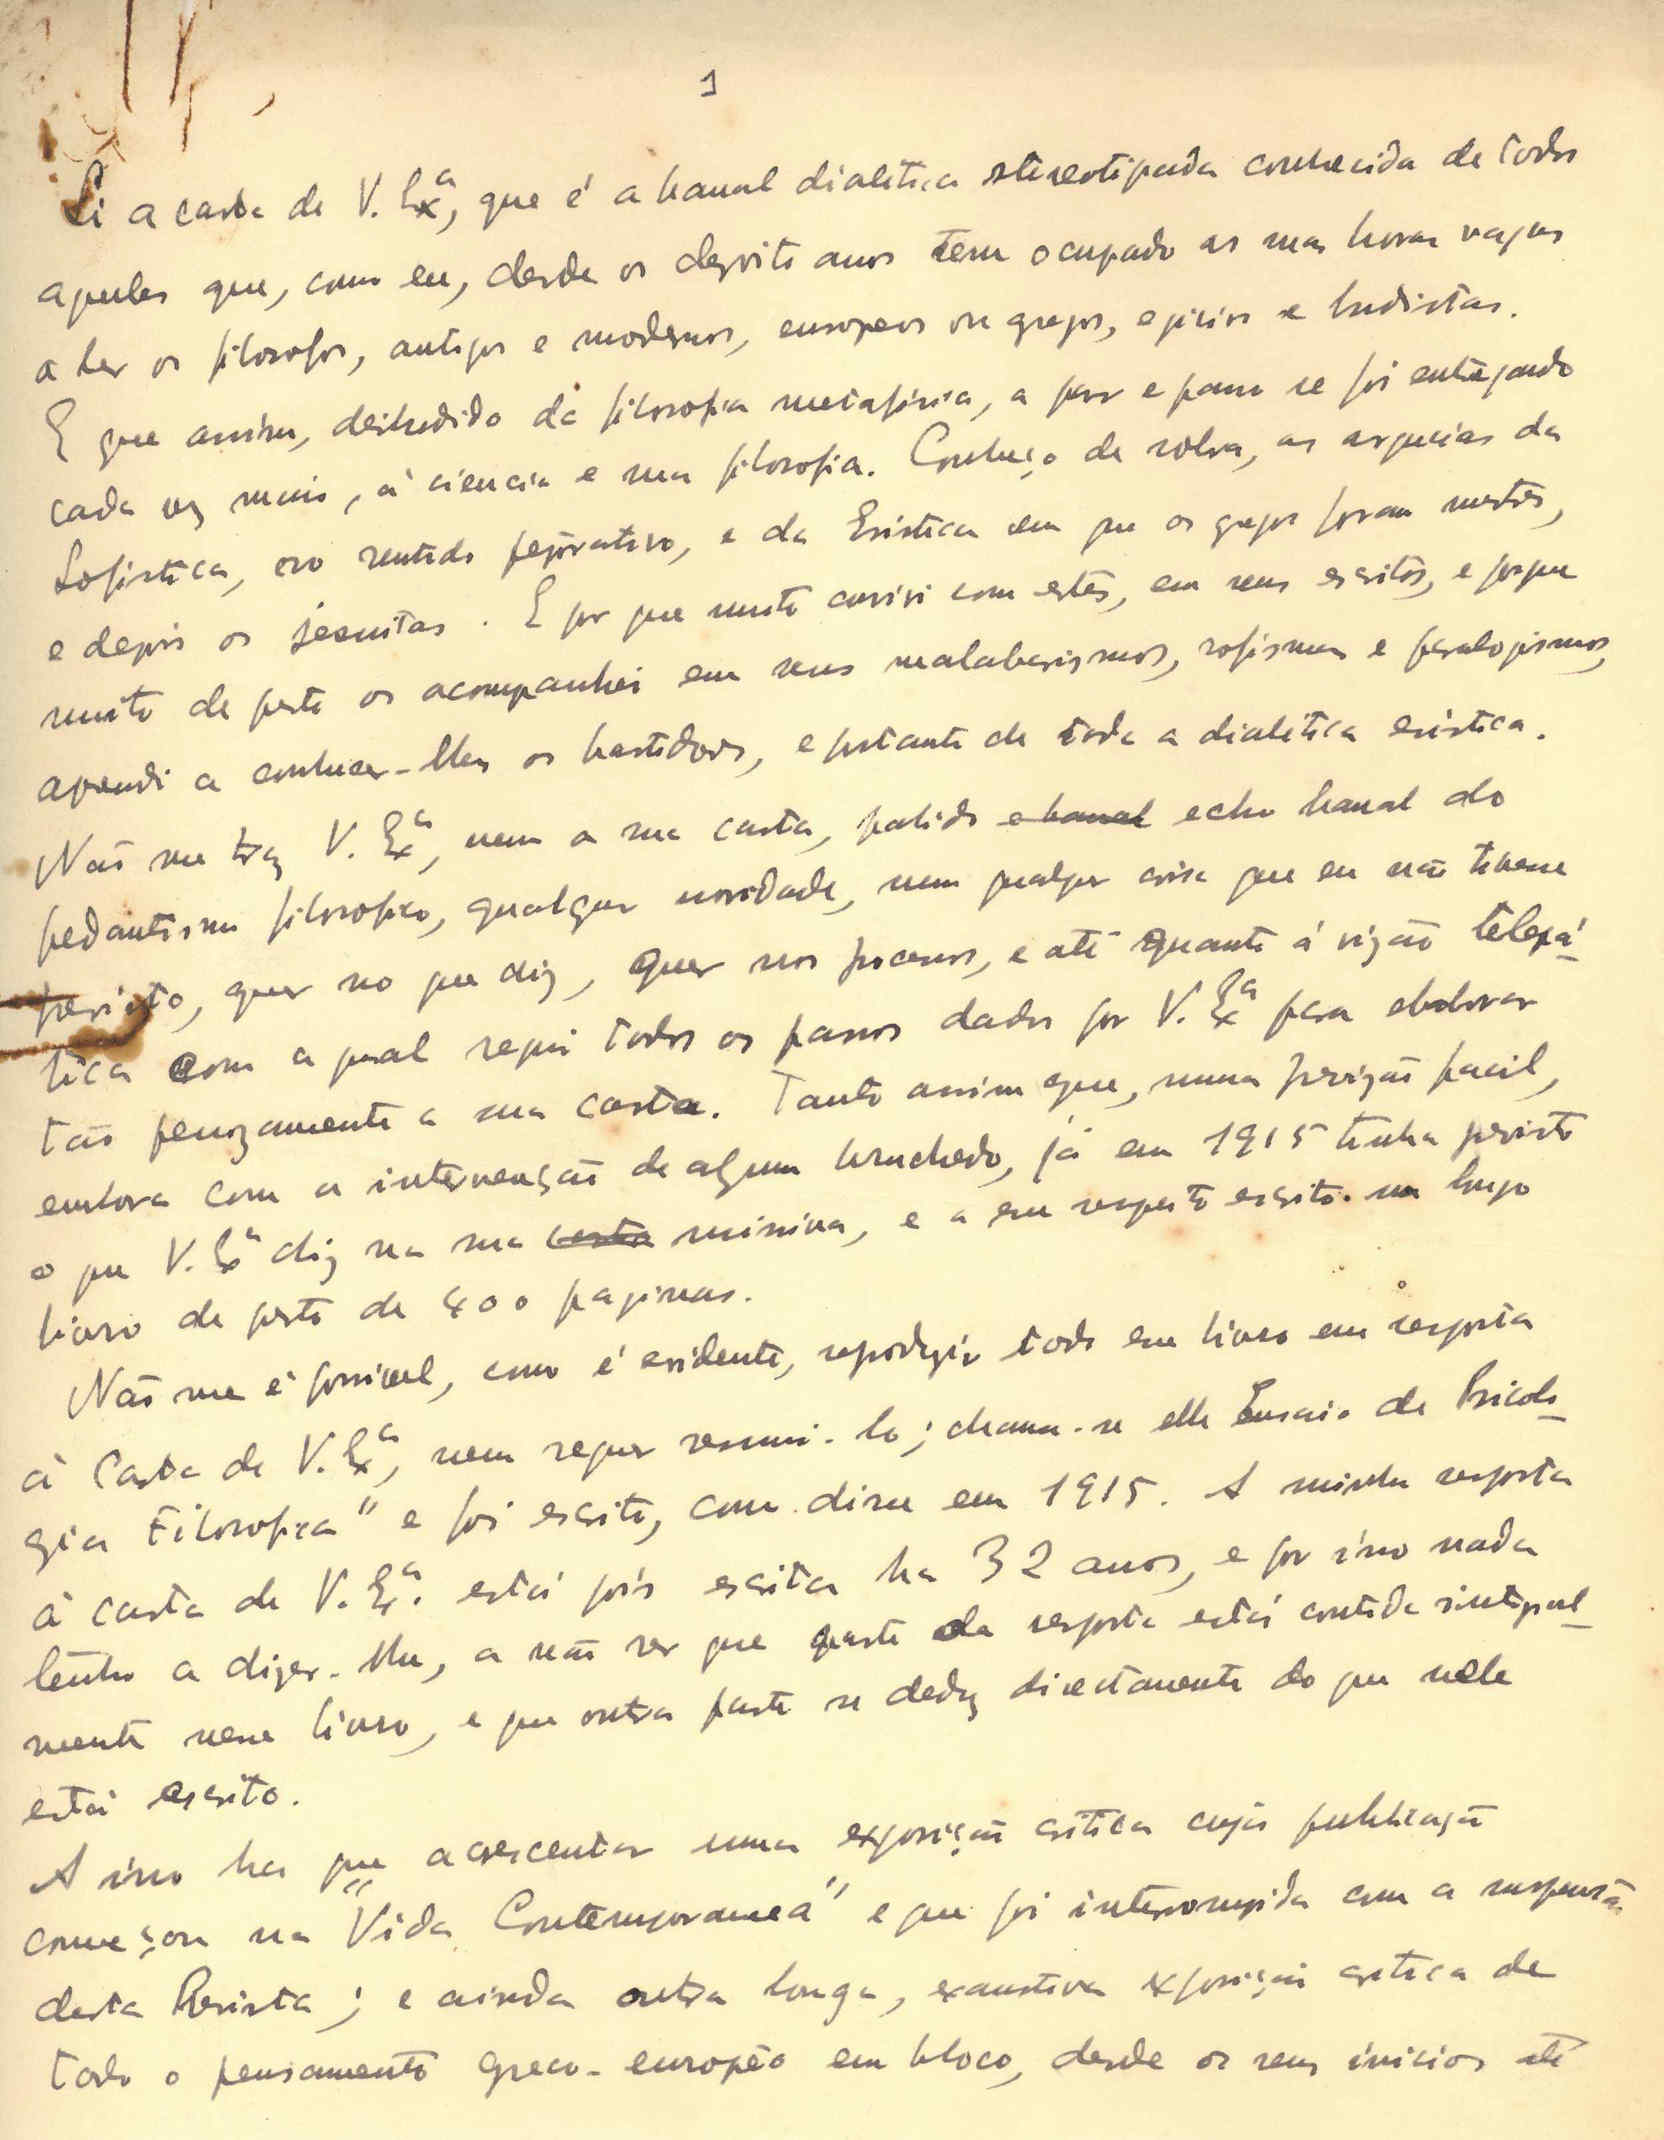 1
Li a carta de V. Exª, que é a banal dialética stereotipada conhecida de todos
aqueles que, como eu, desde os dezoito anos tem ocupado as suas horas vagas
a ler os filosofos, antigos e modernos, europeus ou gregos, egicios e budistas.
E que assim, desiludido da filosofia metafisica, a pouco e pouco se foi entregando
cada vez mais, á ciencia e sua filosofia. Conheço de sobra, as argucias da
Sofistica, no sentido pejorativo, e da Eristica em que os gregos foram mestres,
e depois os jesuitas. E por que muito convivi com estes, em seus escritos, e porque
muito de perto os acompanhei em seus malabarismos, sofismas e paralogismos,
aprendi a conhecer-lhes os bastidores, e portanto de toda a dialética eristica.
Não me traz V. Exª, nem a sua carta, palido e banal echo banal do
pedantismo filosofico, qualquer novidade, nem qualquer coisa que eu não tivesse
previsto, quer no que diz, quer nos processos, e até quanto á vizão telepá-
tica com a qual segui todos os passos dados por V. Exª para elaborar
tão penozamente a sua carta. Tanto assim que, numa previzão facil,
embora com a intervenção de algum bruchedo, já em 1915 tinha previsto
o que V. Exª diz na sua carta missiva, e a seu respeito escrito um longo
livro de perto de 400 paginas.
Não me é possivel, como é evidente, reproduzir todo esse livro em resposta
á Carta de V. Exª, nem sequer resumi-lo; chama-se elle Ensaio de Psicolo-
gia Filosofica" e foi escrito, como disse em 1915. A minha resposta
á carta de V. Exª. está pois escrita ha 32 anos, e por isso nada
tenho a dizer-lhe, a não ser que parte da resposta está contida integral-
mente nesse livro, e que outra parte se deduz directamente do que nele
está escrito.
A isso ha que acrescentar uma exposição critica cuja publicação
começou na "Vida Contemporanea" e que foi interrompida com a suspensão
desta Revista; e ainda outra longa, exaustiva exposição critica de
todo o pensamento greco-européo em bloco, desde os seus inicios até